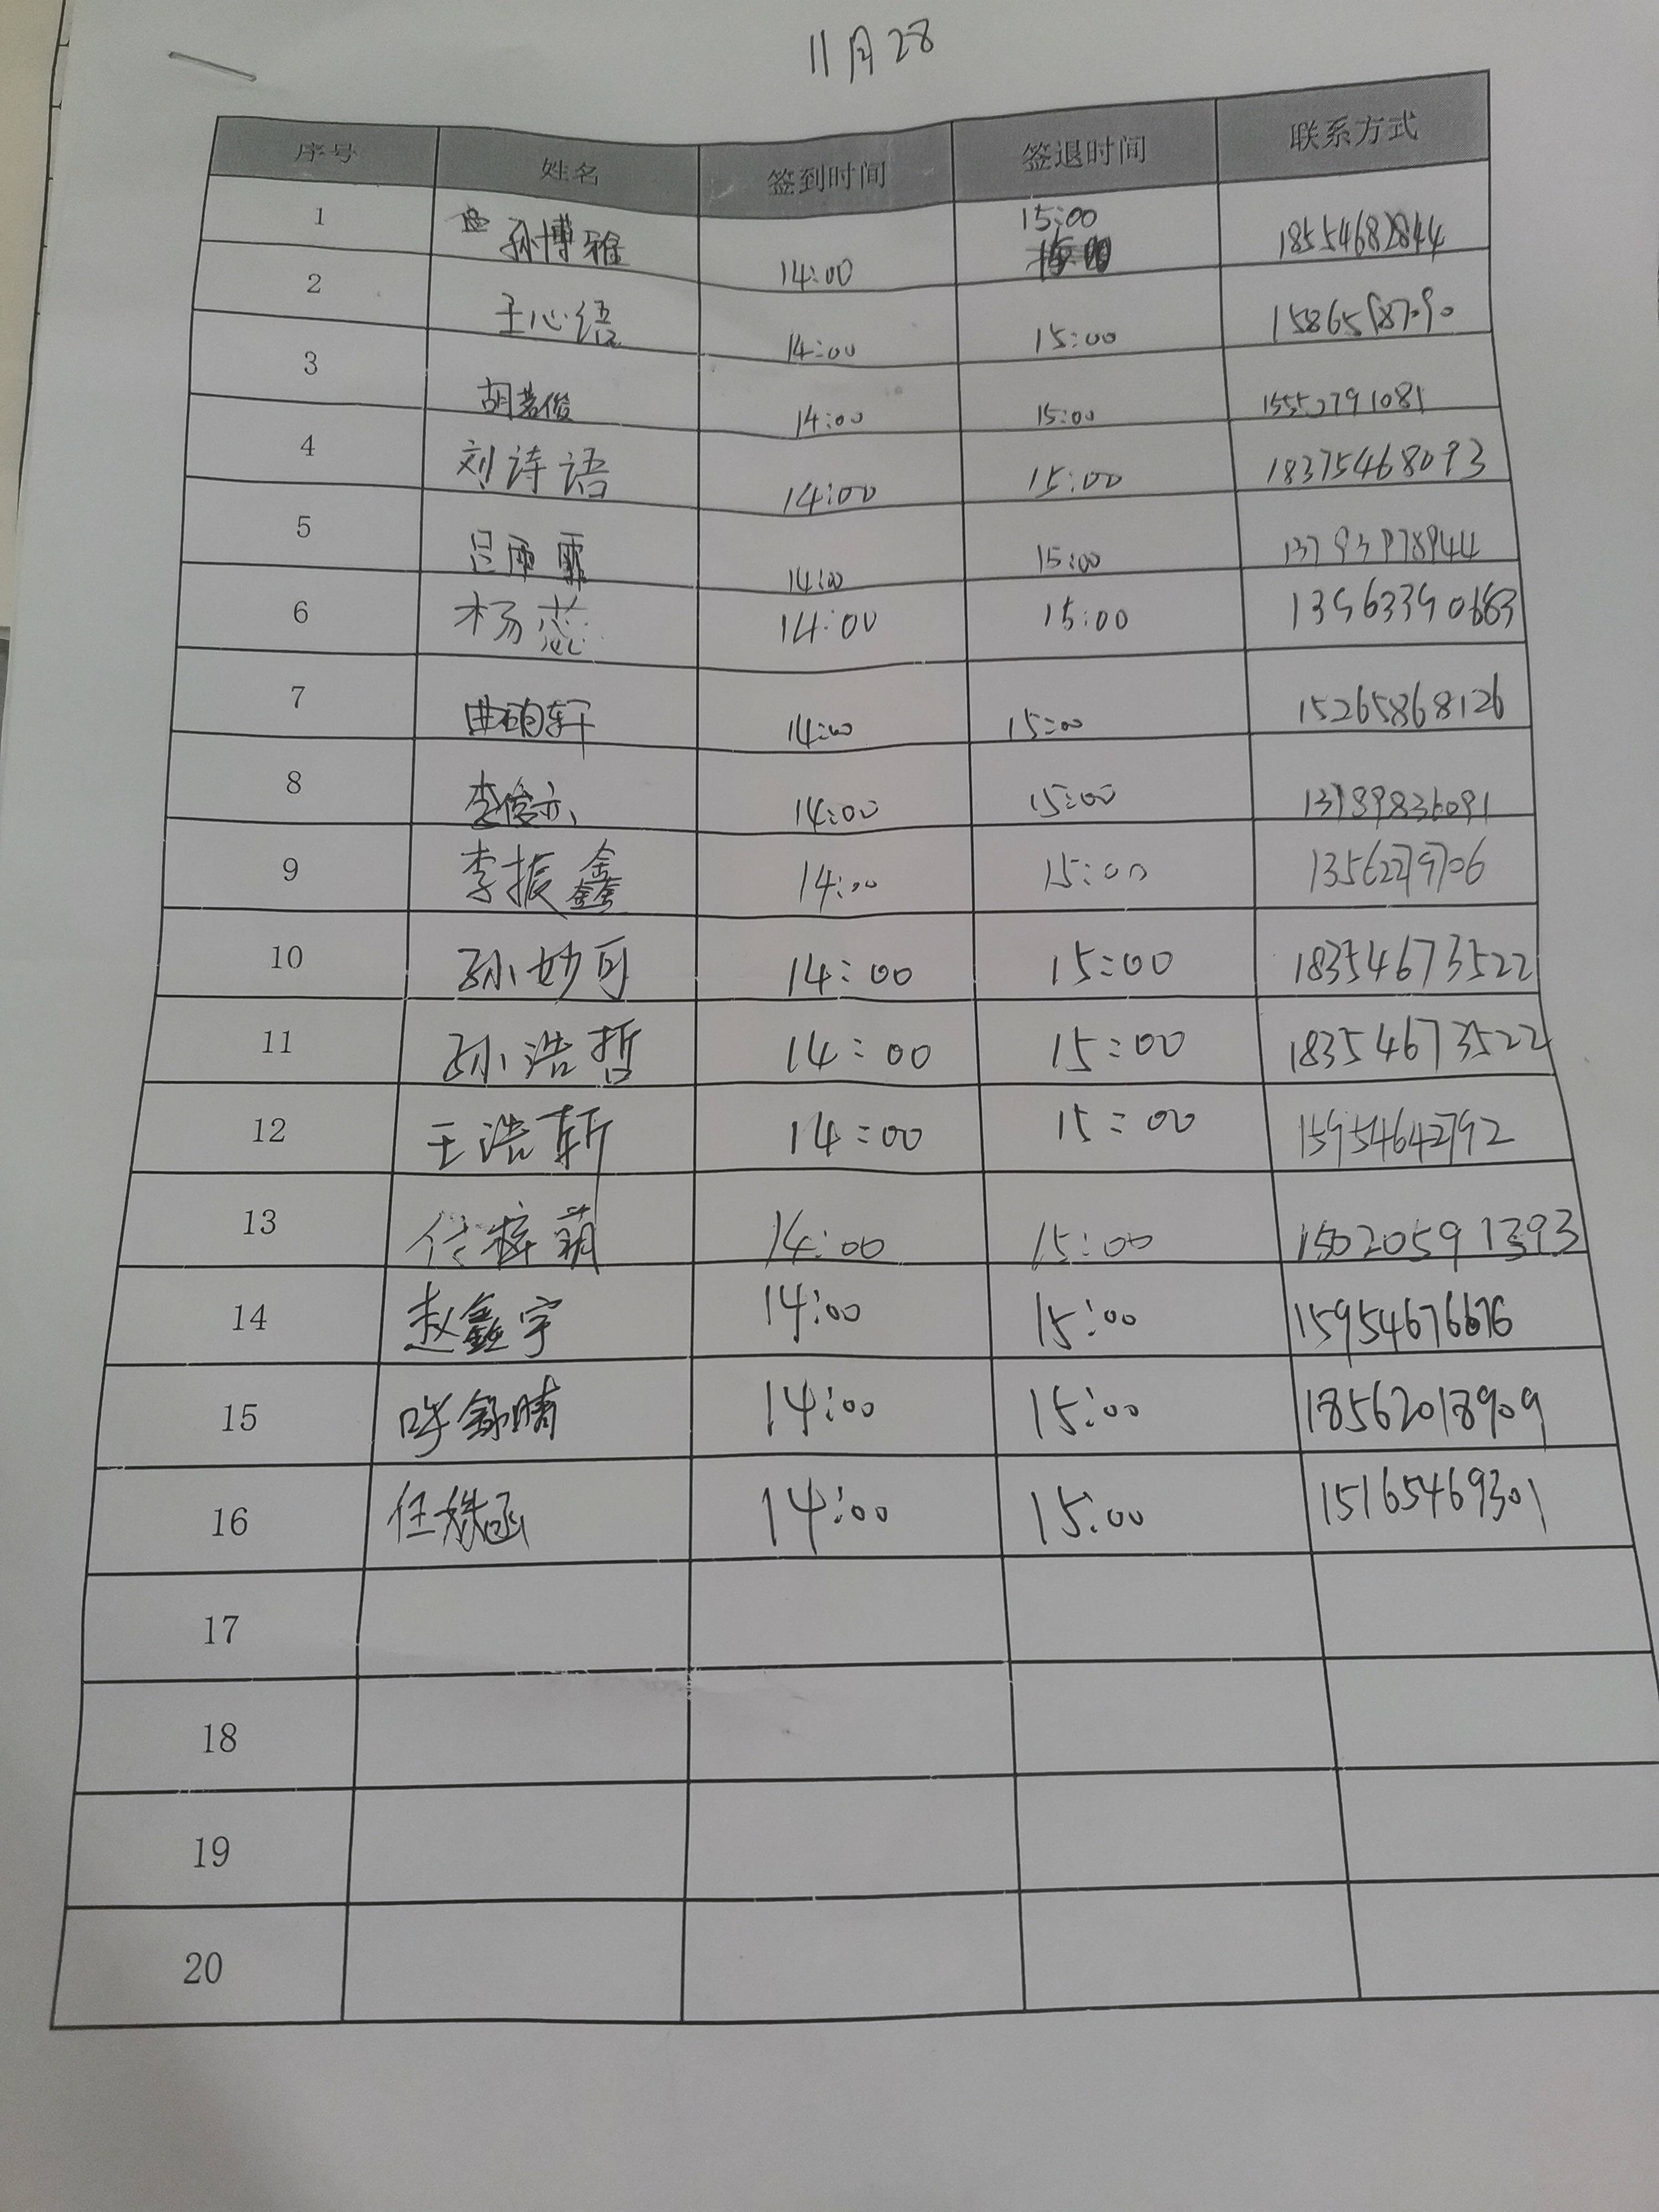 11月28
序号 姓名 签到时间 签退时间 联系方式
1 孙博雅 14:00 15:00
2 王心语 14:00 15:00 15865187090
3 胡若俊 14:00 15:00 15552791081
4 刘诗语 14:00 15:00 18375468093
5 吕雨霏 14:00 15:00
6 杨蕊 14:00 15:00
7 曲硕轩 14:00 15:00 15265868126
8 李俊亦 14:00 15:00
9 李振鑫 14:00 15:00
10 孙妙可 14:00 15:00 18354673522
11 孙浩哲 14:00 15:00 18354673522
12 王浩斩 14:00 15:00 15954642792
13 付梓萌 14:00 15:00 15020591393
14 赵鑫宇 14:00 15:00 15954676676
15 呼舒晴 14:00 15:00 18562018909
16 任姝函 14:00 15:00 15165469301
17
18
19
20